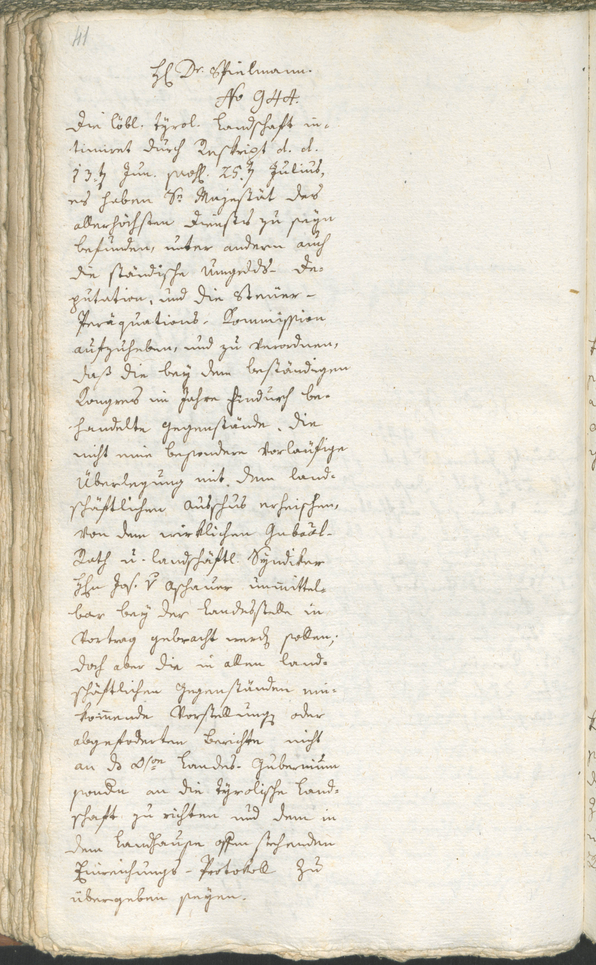 41
H. Dr. Spielmann.
No 944.
Die löbl. tyrol. Landschaft in-
timiret durch Reskript d. d.
13.t Jun. praes. 25.t Julius,
es haben Se Majestät des
allerhöchsten Dienstes zu seyn
befunden, unter andern auch
die ständische Umgelds- De-
putation, und die Steuer-
Peräquations- Kommission
aufzuheben, und zu verordnen,
daß die bey dem beständigen
Kongress im Jahre hindurch be-
handelte Gegenstände, die
nicht eine besondere vorläufige
Überlegung mit dem land-
schäftlichen Ausschus erheischen,
von dem wirklichen Gubäal-
Rath u. landschäftl. Syndiker
Hhn Jos. v Aschauer unmittel-
bar bey der Landesstelle in
Vortrag gebracht werdn sollen;
doch aber die in allen land-
schäftlichen Gegenständen ein-
kommende Vorstellungn oder
abgeforderten Berichte nicht
an ds Landes- Gubernium
sondern an die tyrolische Land-
schaft zu richten und dem in
dem Landhause offen stehenden
Einreichungs-Protokoll zu
übergeben seyen.